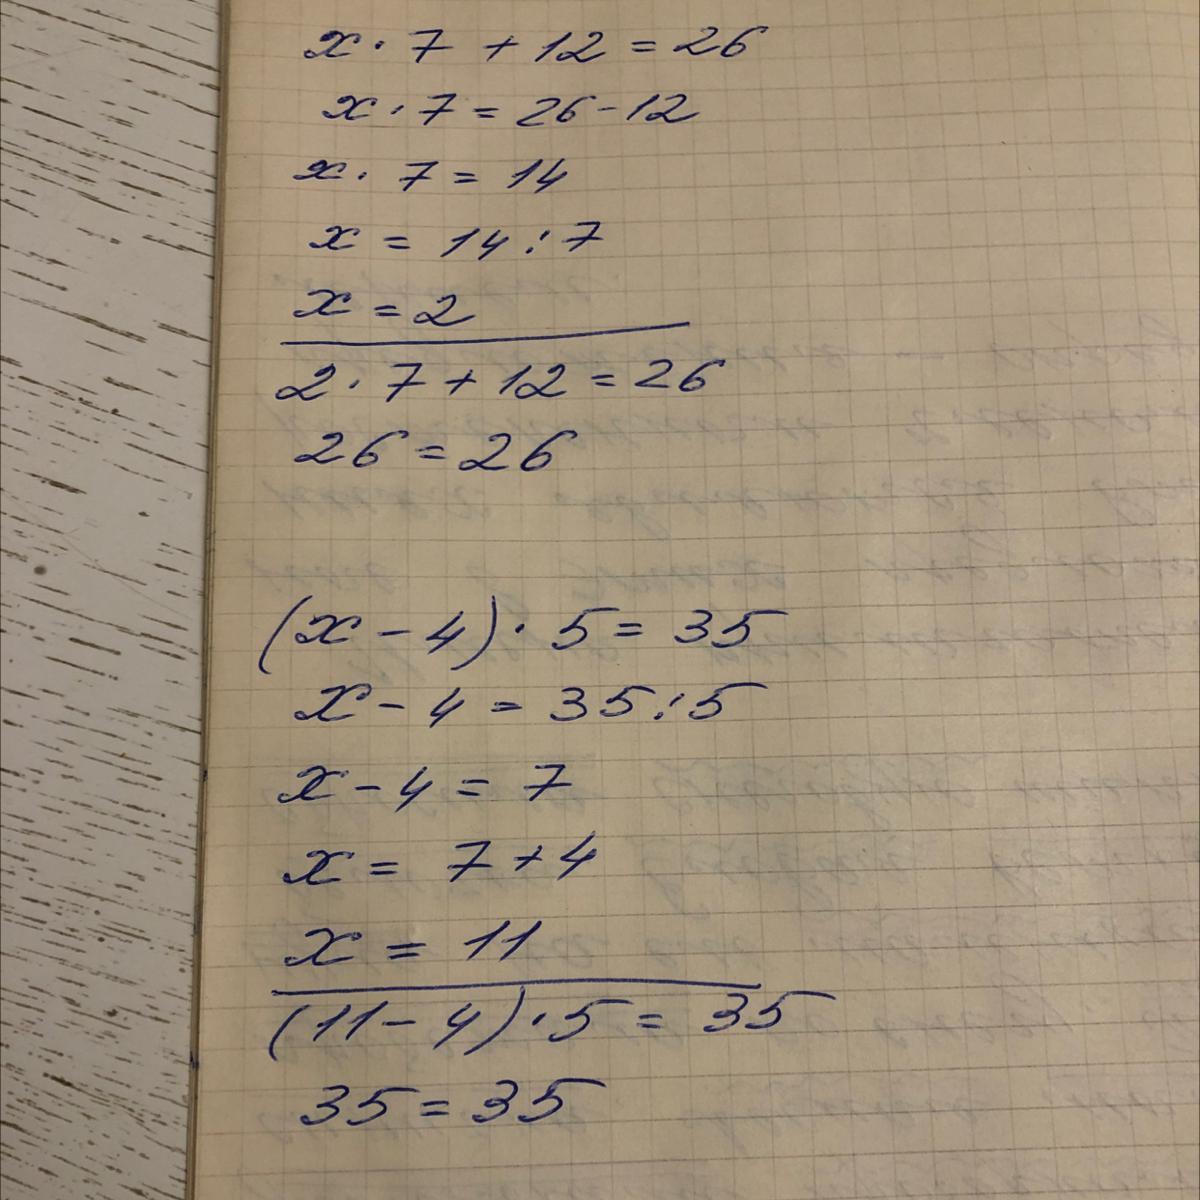 x · 7 + 12 = 26
x · 7 = 26 - 12
x · 7 = 14
x = 14 : 7
x = 2
2 · 7 + 12 = 26
26 = 26
(x - 4) · 5 = 35
x - 4 = 35 : 5
x - 4 = 7
x = 7 + 4
x = 11
(11 - 4) · 5 = 35
35 = 35